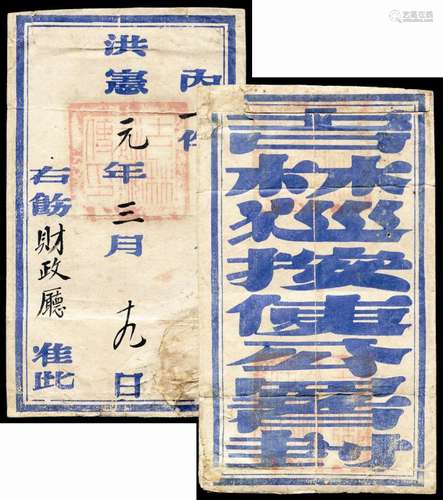 內一件
洪憲元年三月十九日
右飭財政廳 准此
吉林巡按使公署封